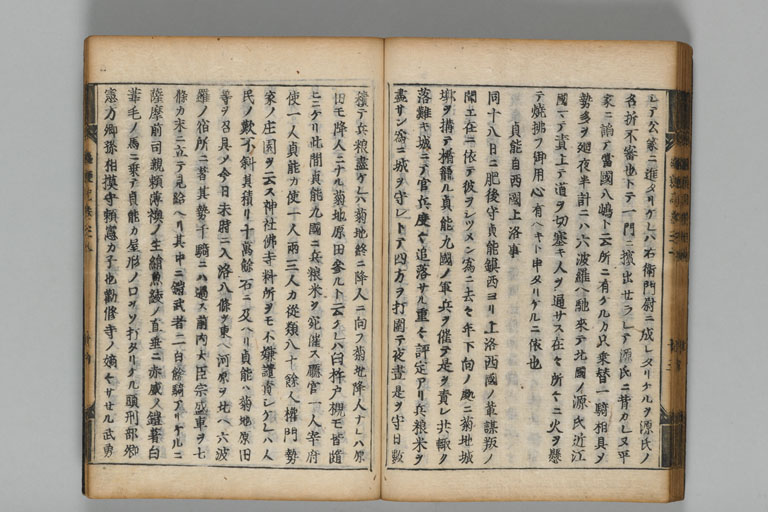 シテ公家ニ進タリケレハ右衛門尉ニ成レタリケルヲ源氏ノ
名折不審也トテ一門ニ擯出セラレテ源氏ニ背カレ又平
家ニ諂テ當國八嶋ト云所ニ有ケルカ只乗替一騎相具メ
勢多ヲ廻夜半計ニハ六波羅ヘ馳来テ北國ノ源氏近江
國マテ責上テ道ヲ切塞キ人ヲ通サス在々所々ニ火ヲ懸
テ焼拂フ御用心有ヘキト申タリケルニ依也
貞能自西國上洛事
同十八日ニ肥後守貞能鎮西ヨリ上洛西國ノ輩謀叛ノ
聞エ在ニ依テ彼ヲシツメン為ニ去々年下向ノ処ニ菊地城
墎ヲ構テ楯籠ル貞能九國ノ軍兵ヲ催テ是ヲ責レ共輙ク
落難キ城ニテ官兵度々追落サル重テ評定アリ兵粮米ヲ
盡サン為ニ城ヲ守レトテ四方ヲ打圍テ夜晝是ヲ守日數
積テ兵粮盡ケレハ菊地終ニ降人ニ向フ菊地降人ナレハ原
田モ降人ニナル菊地原田参ルト云ケレハ臼杵戸槻モ皆随
ヒニケリ此間貞能九國ニ兵粮米ヲ宛催ス廳官一人宰府
使一人貞能カ使一人兩三人カ從類八十餘人權門勢
家ノ庄園ヲ云ス神社佛寺料所ヲモ不嫌譴責シケレハ人
民ノ歎不斜其積リ十萬餘石ニ及ヘリ貞能ハ菊地原田
等ヲ召具メ今日未時ニ入洛八條ヲ東ヘ河原ヲ北ヘ六波
羅ノ宿所ニ着其勢千騎ニハ過ス前内大臣宗盛車ヲ七
條カ末ニ立テ見給ヘリ其中ニ鎧武者二百餘騎アリケルニ
薩摩前司親頼薄襖ノ生絹魚綾ノ直垂ニ赤威ノ鎧着白
葦毛ノ馬ニ乗テ貞能カ屋形ノ口ヲソ打タリケル頭刑部卿
憲方卿孫相摸守頼憲カ子也勸修寺ノ嫡々サセル武勇